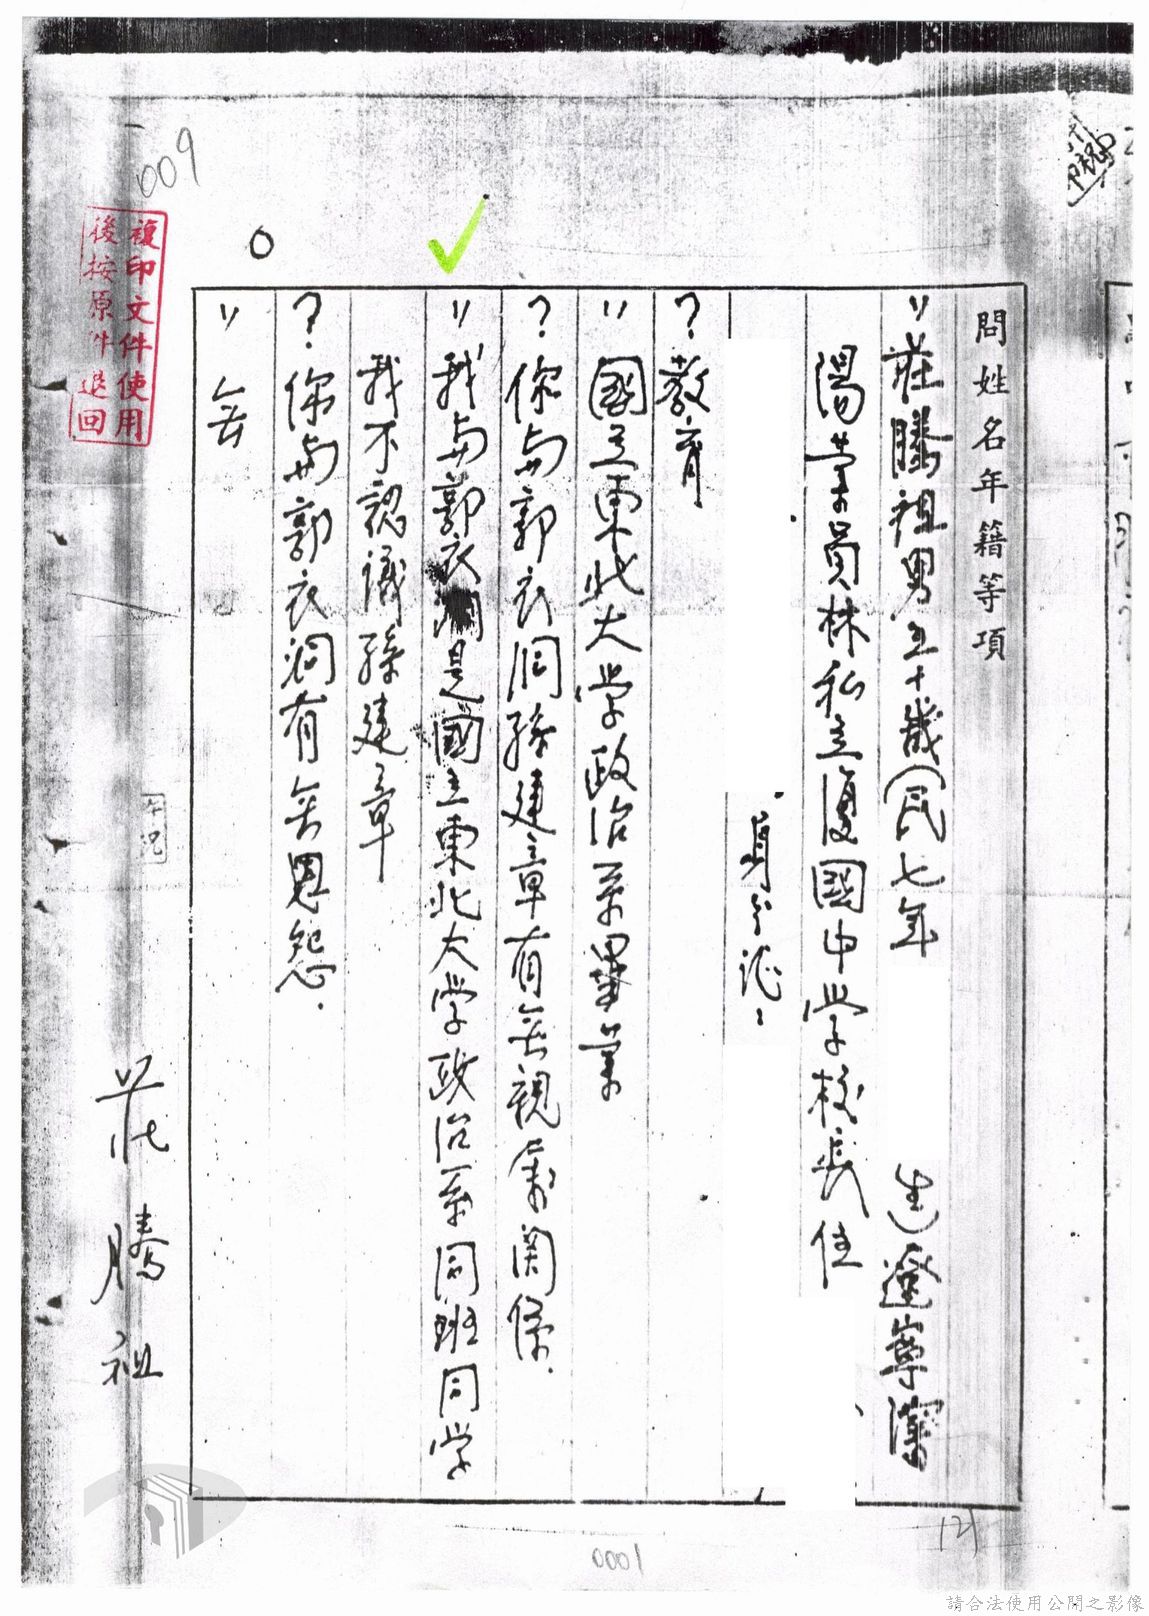 問姓名年籍等項
〃莊騰祖男五十歲(民七年 生)遼寧瀋
陽業員林私立復國中學校長住
身分證:
?教育
〃國立東北大学政治系畢業
?你与郭衣洞孫建章有无親屬関係.
〃我与郭衣洞是國立東北大学政治系同班同学
我不認識孫建章.
?你与郭衣洞有无恩怨.
〃无
莊騰祖
複印文件使用
後按原件退回
009
0001
121
請合法使用公開之影像